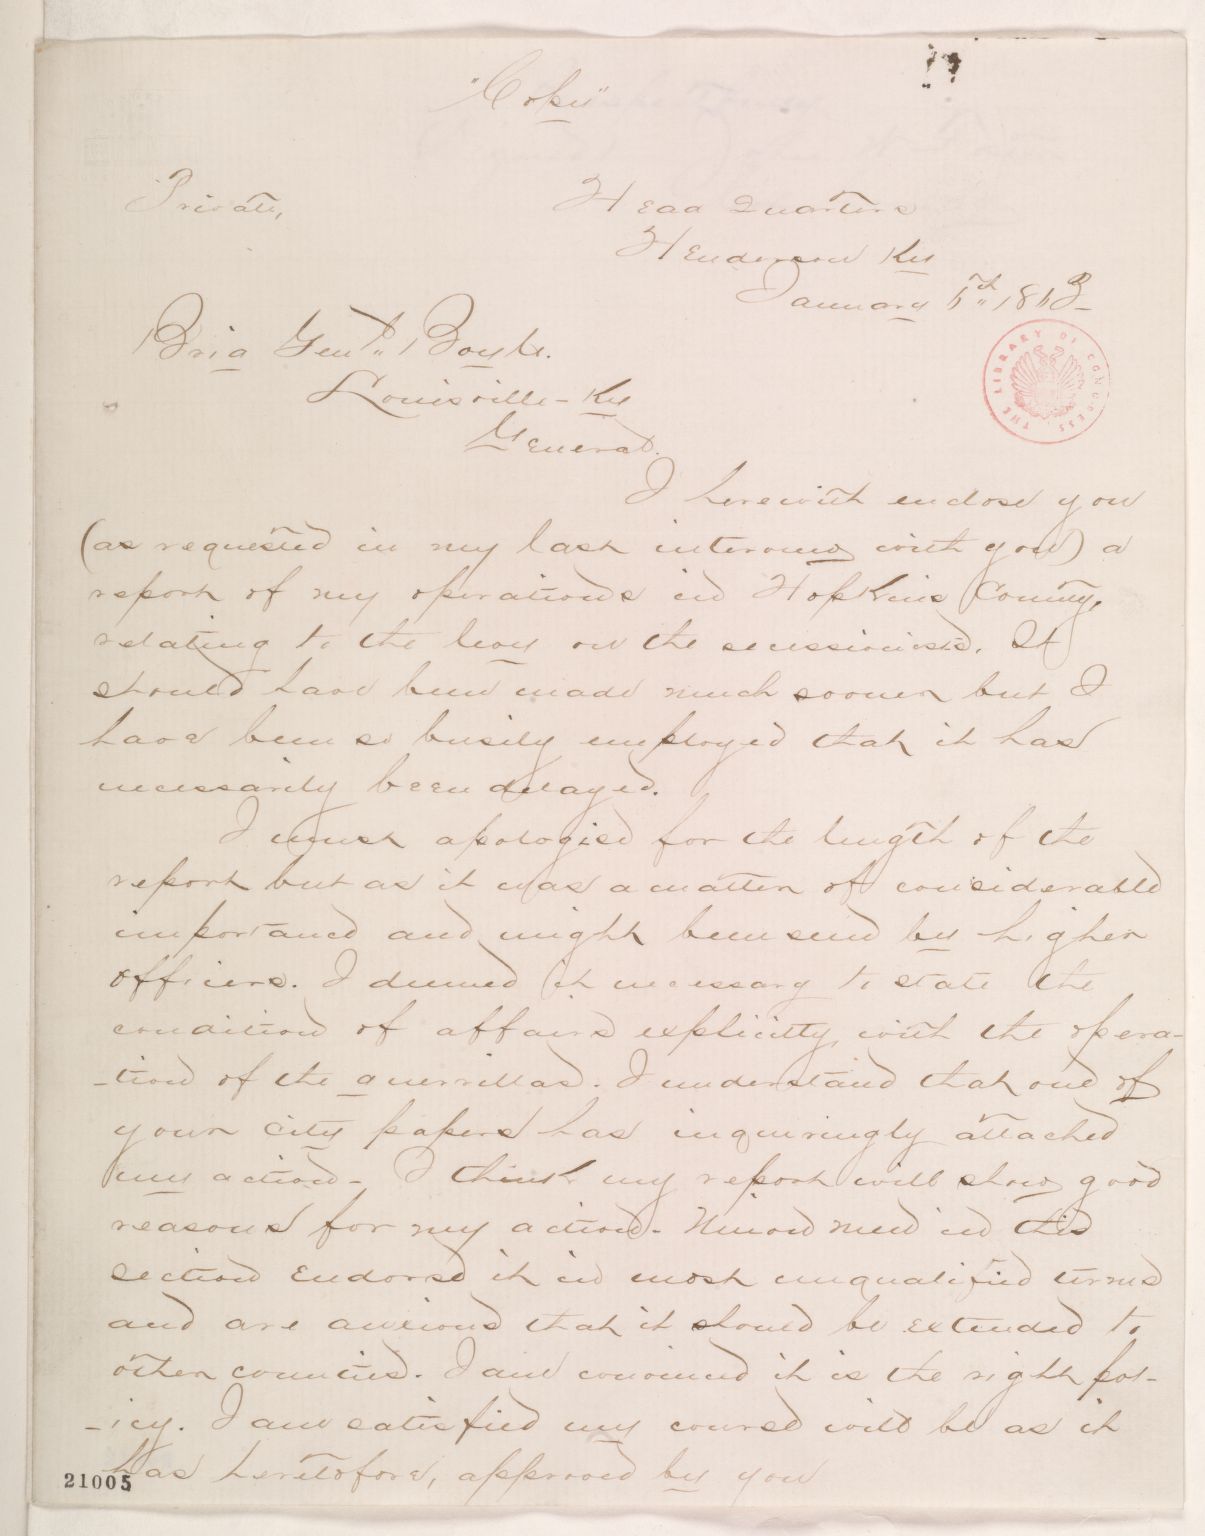 "Copy"
Private,
Head Quarters
Henderson Ky
January 5th 1863-
Brig Genl Boyle.
Louisville - Ky
General.
I herewith enclose you
(as requested in my last interview with you) a
report of my operations in Hopkins County,
relating to the levy on the secessionists. It
should have been made much sooner but I
have been so busily employed that it has
necessarily been delayed.
I must apologise for the length of the
report but as it was a matter of considerable
importance and might been seen by higher
officers. I deemed it necessary to state the
condition of affairs explicitly, with the opera-
-tion of the guerrillas. I understand that one of
your city papers has inquiringly attached
my action - I think my report will show good
reasons for my action. Union men in this
section endorse it in most unqualified terms
and are anxious that it should be extended to
other counties. I am convinced it is the right pol-
-icy. I am satisfied my course will be as it
has heretofore, approved by you
21005
THE LIBRARY OF CONGRESS